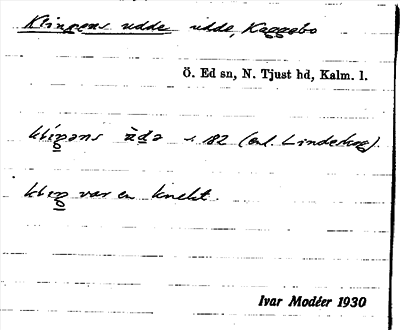 Klingens udde udde, Kaggebo
Ö. Ed sn, N. Tjust hd, Kalm. l.
kliŋəns ùdə s. 82 (enl. Lindekog).
kliŋ var en knekt.
Ivar Modéer 1930